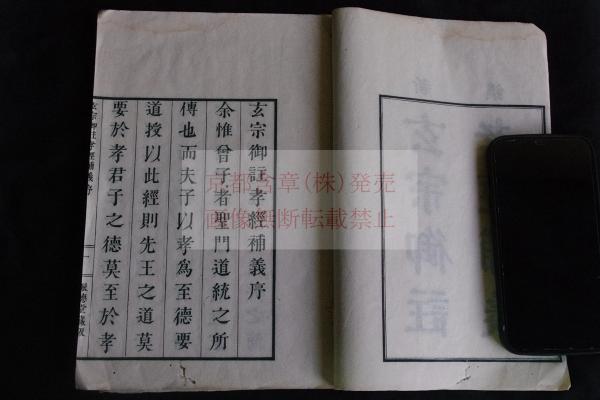 玄宗御註孝經補義序
余惟曾子者聖門道統之所
傳也而夫子以孝為至德要
道授以此經則先王之道莫
要於孝君子之德莫至於孝
玄宗御註孝經補義序
一
京都含章(株)発売
画像無断転載禁止
玄宗御註